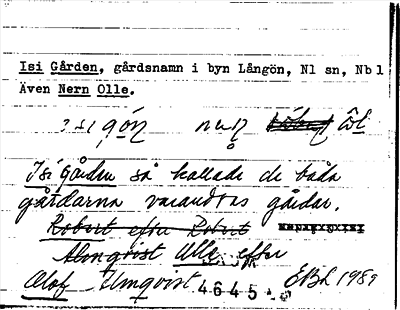 Isi Gården, gårdsnamn i byn Långön, Nl sn, Nbl
Även Nern Olle.
Isi gården så kallade de båda
gårdarna varandras gårdar.
Robert efter Robert
Almqvist Olle efter
Olof Elmqvist 4645 EBL 1989